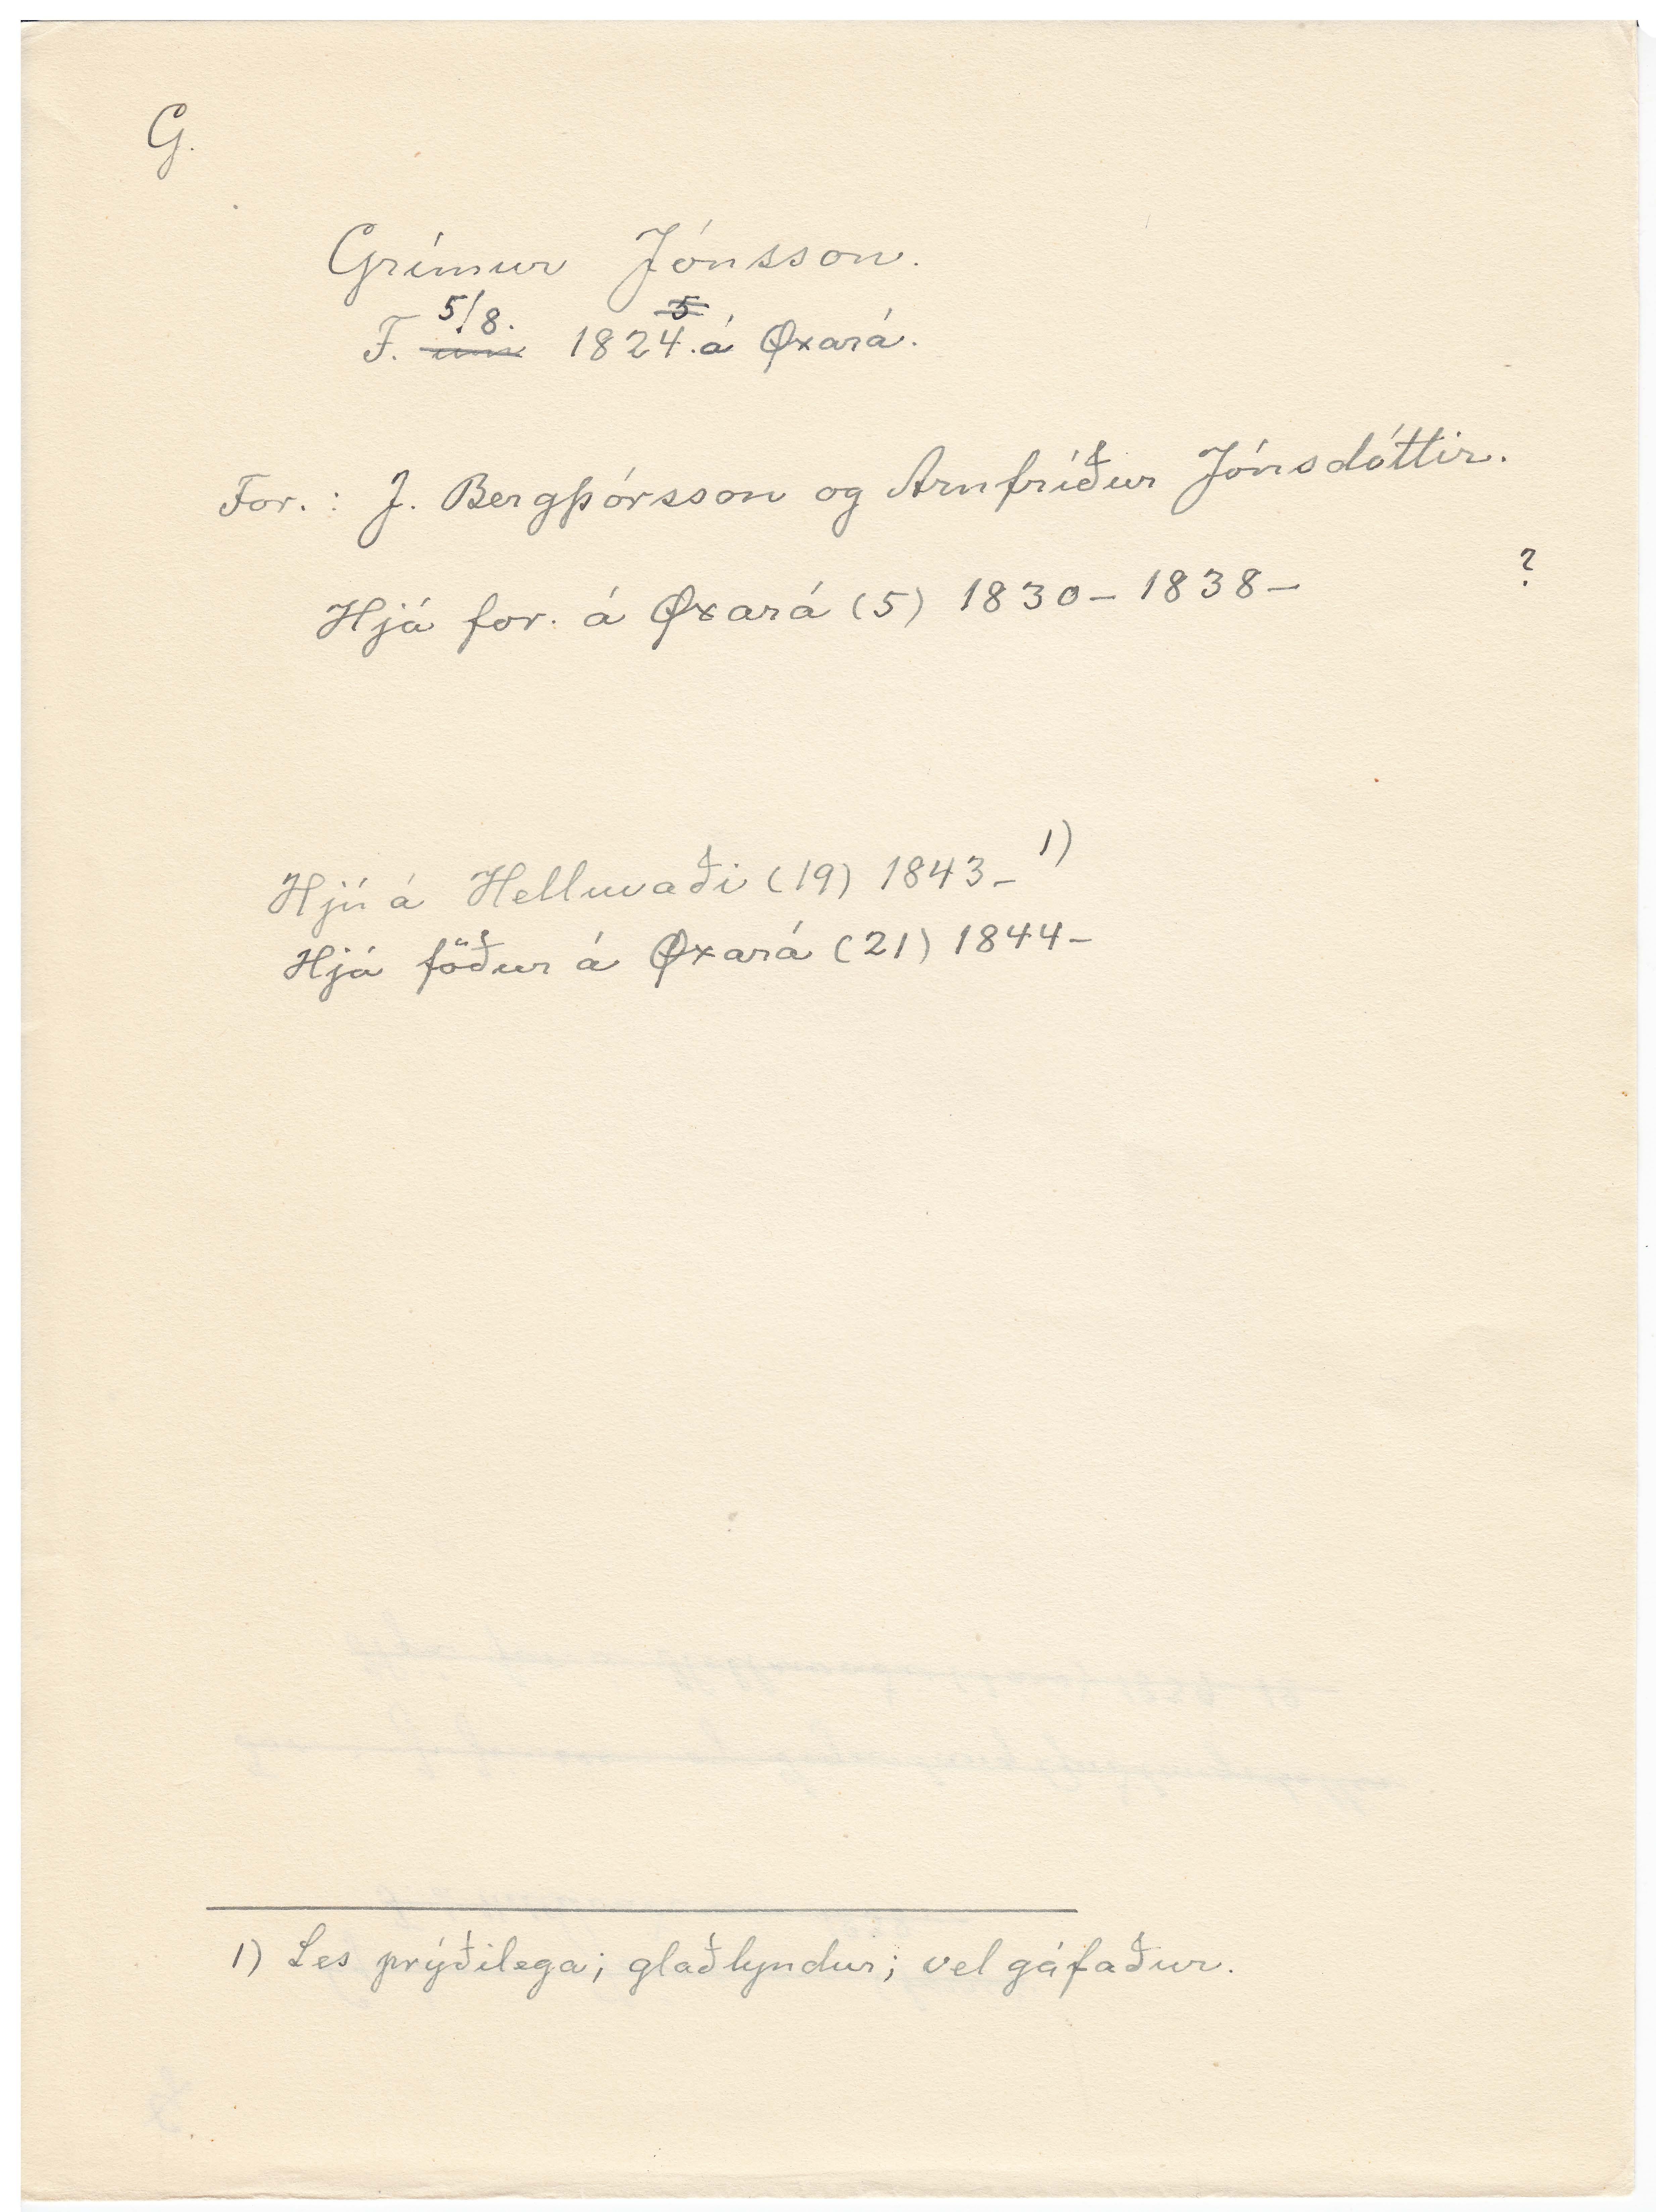 G.
Grímur Jónsson.
F. 5/8. 1824. á Øxará.
For.: J. Bergþórsson og Arnfríður Jónsdóttir.
Hjá for. á Øxará (5) 1830– 1838– ?
Hjú á Helluvaði (19) 1843– 1)
Hjá föður á Øxará (21) 1844–
1) Les prýðilega; glaðlyndur; vel gáfaður.